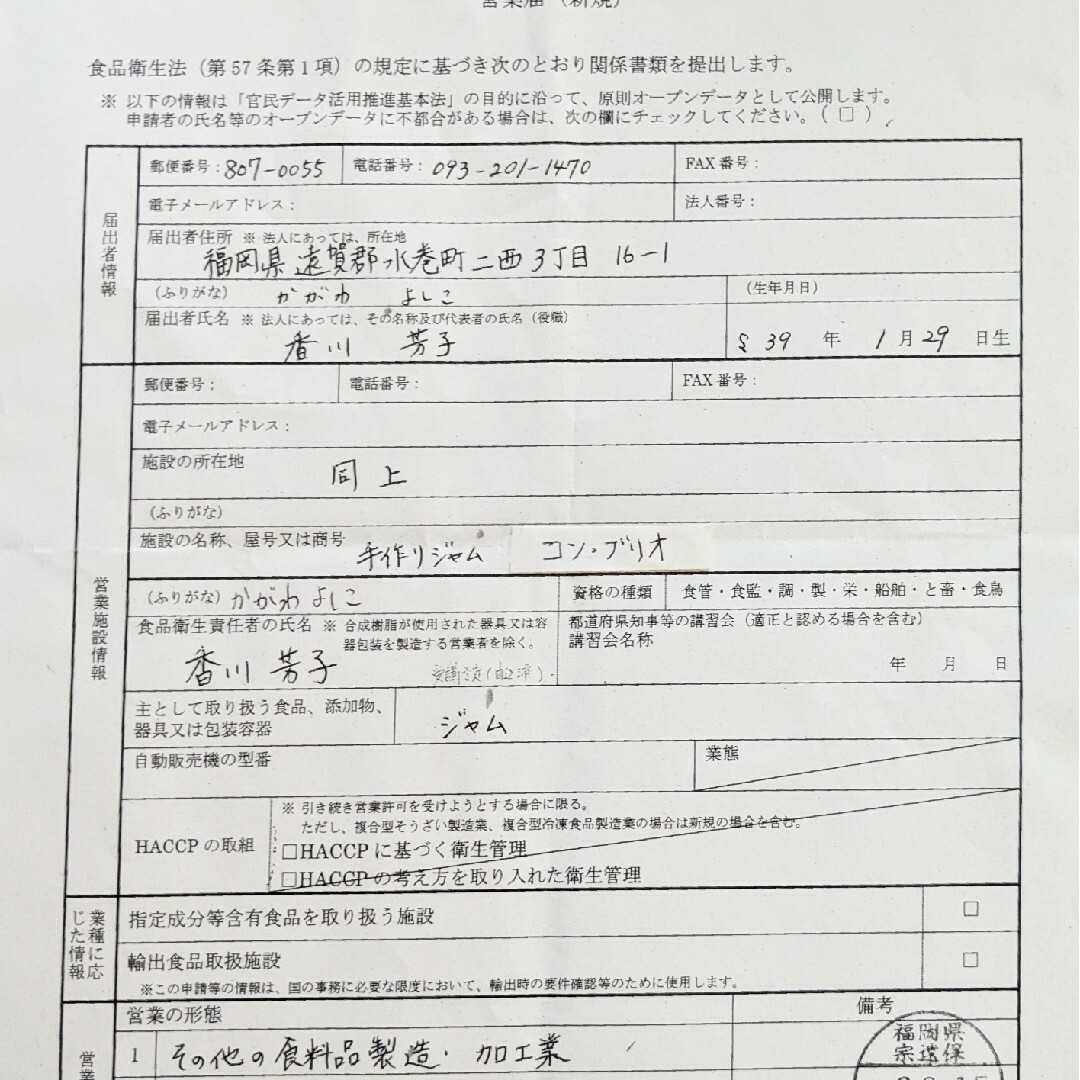 営業届（新規）
食品衛生法（第57条第1項）の規定に基づき次のとおり関係書類を提出します。
※ 以下の情報は「官民データ活用推進基本法」の目的に沿って、原則オープンデータとして公開します。
申請者の氏名等のオープンデータに不都合がある場合は、次の欄にチェックしてください。（□）
届出者情報
郵便番号：807-0055 電話番号：093-201-1470 FAX番号：
電子メールアドレス： 法人番号：
届出者住所 ※ 法人にあっては、所在地
福岡県遠賀郡水巻町二西3丁目 16-1
（ふりがな） かがわ よしこ （生年月日）
届出者氏名 ※ 法人にあっては、その名称及び代表者の氏名（役職）
香川 芳子 39 年 1 月 29 日生
営業施設情報
郵便番号： 電話番号： FAX番号：
電子メールアドレス：
施設の所在地
同上
（ふりがな）
施設の名称、屋号又は商号
手作りジャム コン・ブリオ
（ふりがな） かがわ よしこ 資格の種類 食管・食監・調・製・栄・船舶・と畜・食鳥
食品衛生責任者の氏名 ※ 合成樹脂が使用された器具又は容器包装を製造する営業者を除く。
香川 芳子
都道府県知事等の講習会（適正と認める場合を含む）
講習会名称
年 月 日
主として取り扱う食品、添加物、
器具又は包装容器
ジャム
自動販売機の型番 業態
HACCPの取組
※ 引き続き営業許可を受けようとする場合に限る。
ただし、複合型そうざい製造業、複合型冷凍食品製造業の場合は新規の場合を含む。
□HACCPに基づく衛生管理
□HACCPの考え方を取り入れた衛生管理
業種に応じた情報
指定成分等含有食品を取り扱う施設 □
輸出食品取扱施設 □
※この申請等の情報は、国の事務に必要な限度において、輸出時の要件確認等のために使用します。
営業の形態 備考
営業
1 その他の食料品製造・加工業
福岡県
宗遠保